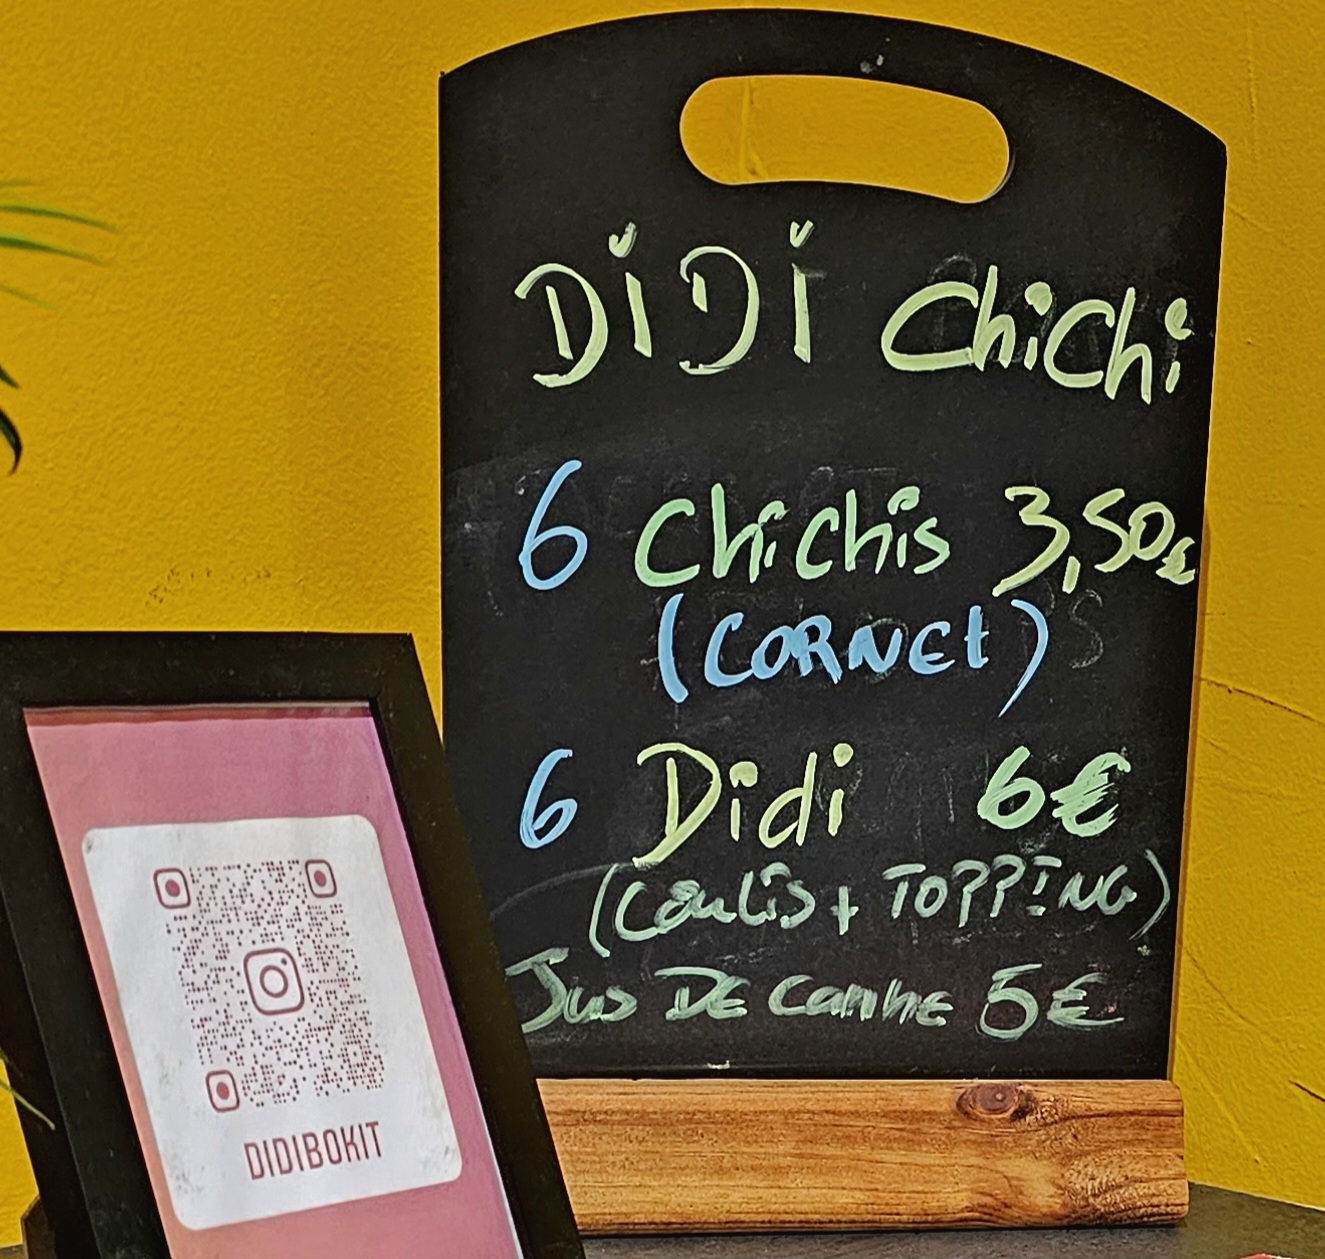 DiDi ChiChi
6 Chichis 3,50€
(CORNEt)
6 Didi 6€
(Coulis + TOPPING)
Jus DE Canne 5€
DIDIBOKIT